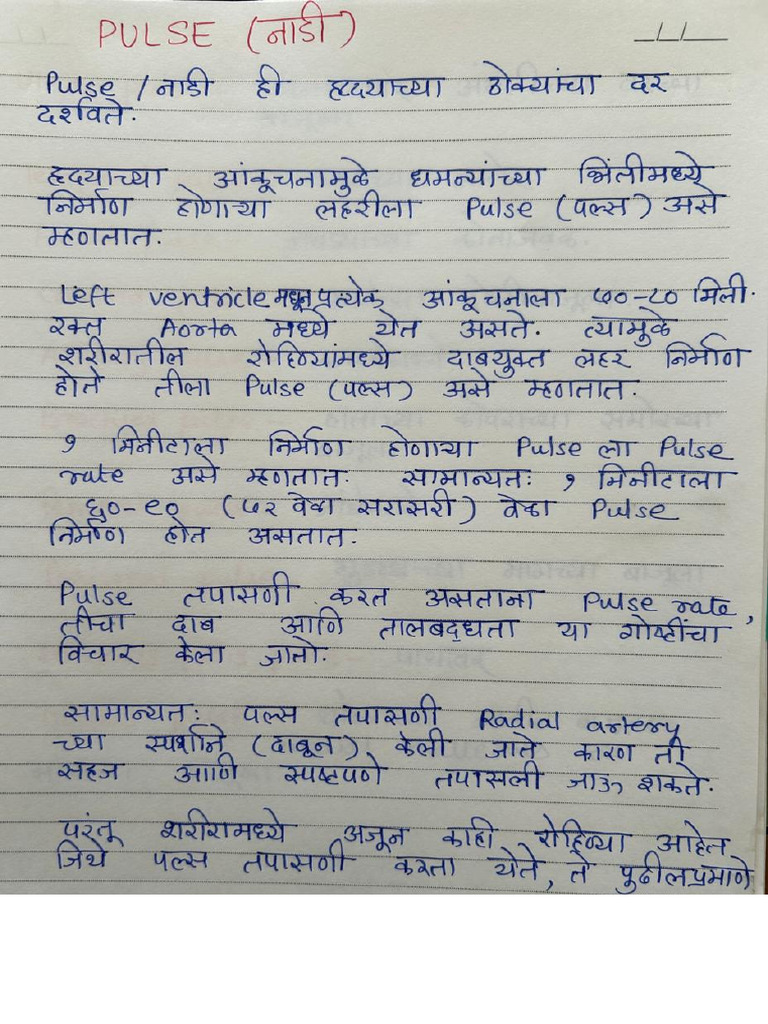 PULSE (नाडी)
Pulse / नाडी ही हृदयाच्या ठोक्यांचा दर
दर्शविते.
हृदयाच्या आंकूचनामुळे धमन्यांच्या भिंतीमध्ये
निर्माण होणाऱ्या लहरीला Pulse (पल्स) असे
म्हणतात.
Left ventricle मधून प्रत्येक आंकूचनाला ७०-८० मिली.
रक्त Aorta मध्ये येत असते. त्यामुळे
शरीरातील रोहिण्यांमध्ये दाबयुक्त लहर निर्माण
होते तीला Pulse (पल्स) असे म्हणतात.
१ मिनीटाला निर्माण होणाऱ्या Pulse ला Pulse
rate असे म्हणतात. सामान्यतः १ मिनीटाला
६०-९० (७२ वेळा सरासरी) वेळा Pulse
निर्माण होत असतात.
Pulse तपासणी करत असताना Pulse rate,
तीचा दाब आणि तालबद्धता या गोष्टींचा
विचार केला जातो.
सामान्यतः पल्स तपासणी Radial artery
च्या स्पर्शाने (दाबून) केली जाते कारण ती
सहज आणि स्पष्टपणे तपासली जाऊ शकते.
परंतू शरीरामध्ये अजून काही रोहिण्या आहेत
जिथे पल्स तपासणी करता येते, ते पुढीलप्रमाणे